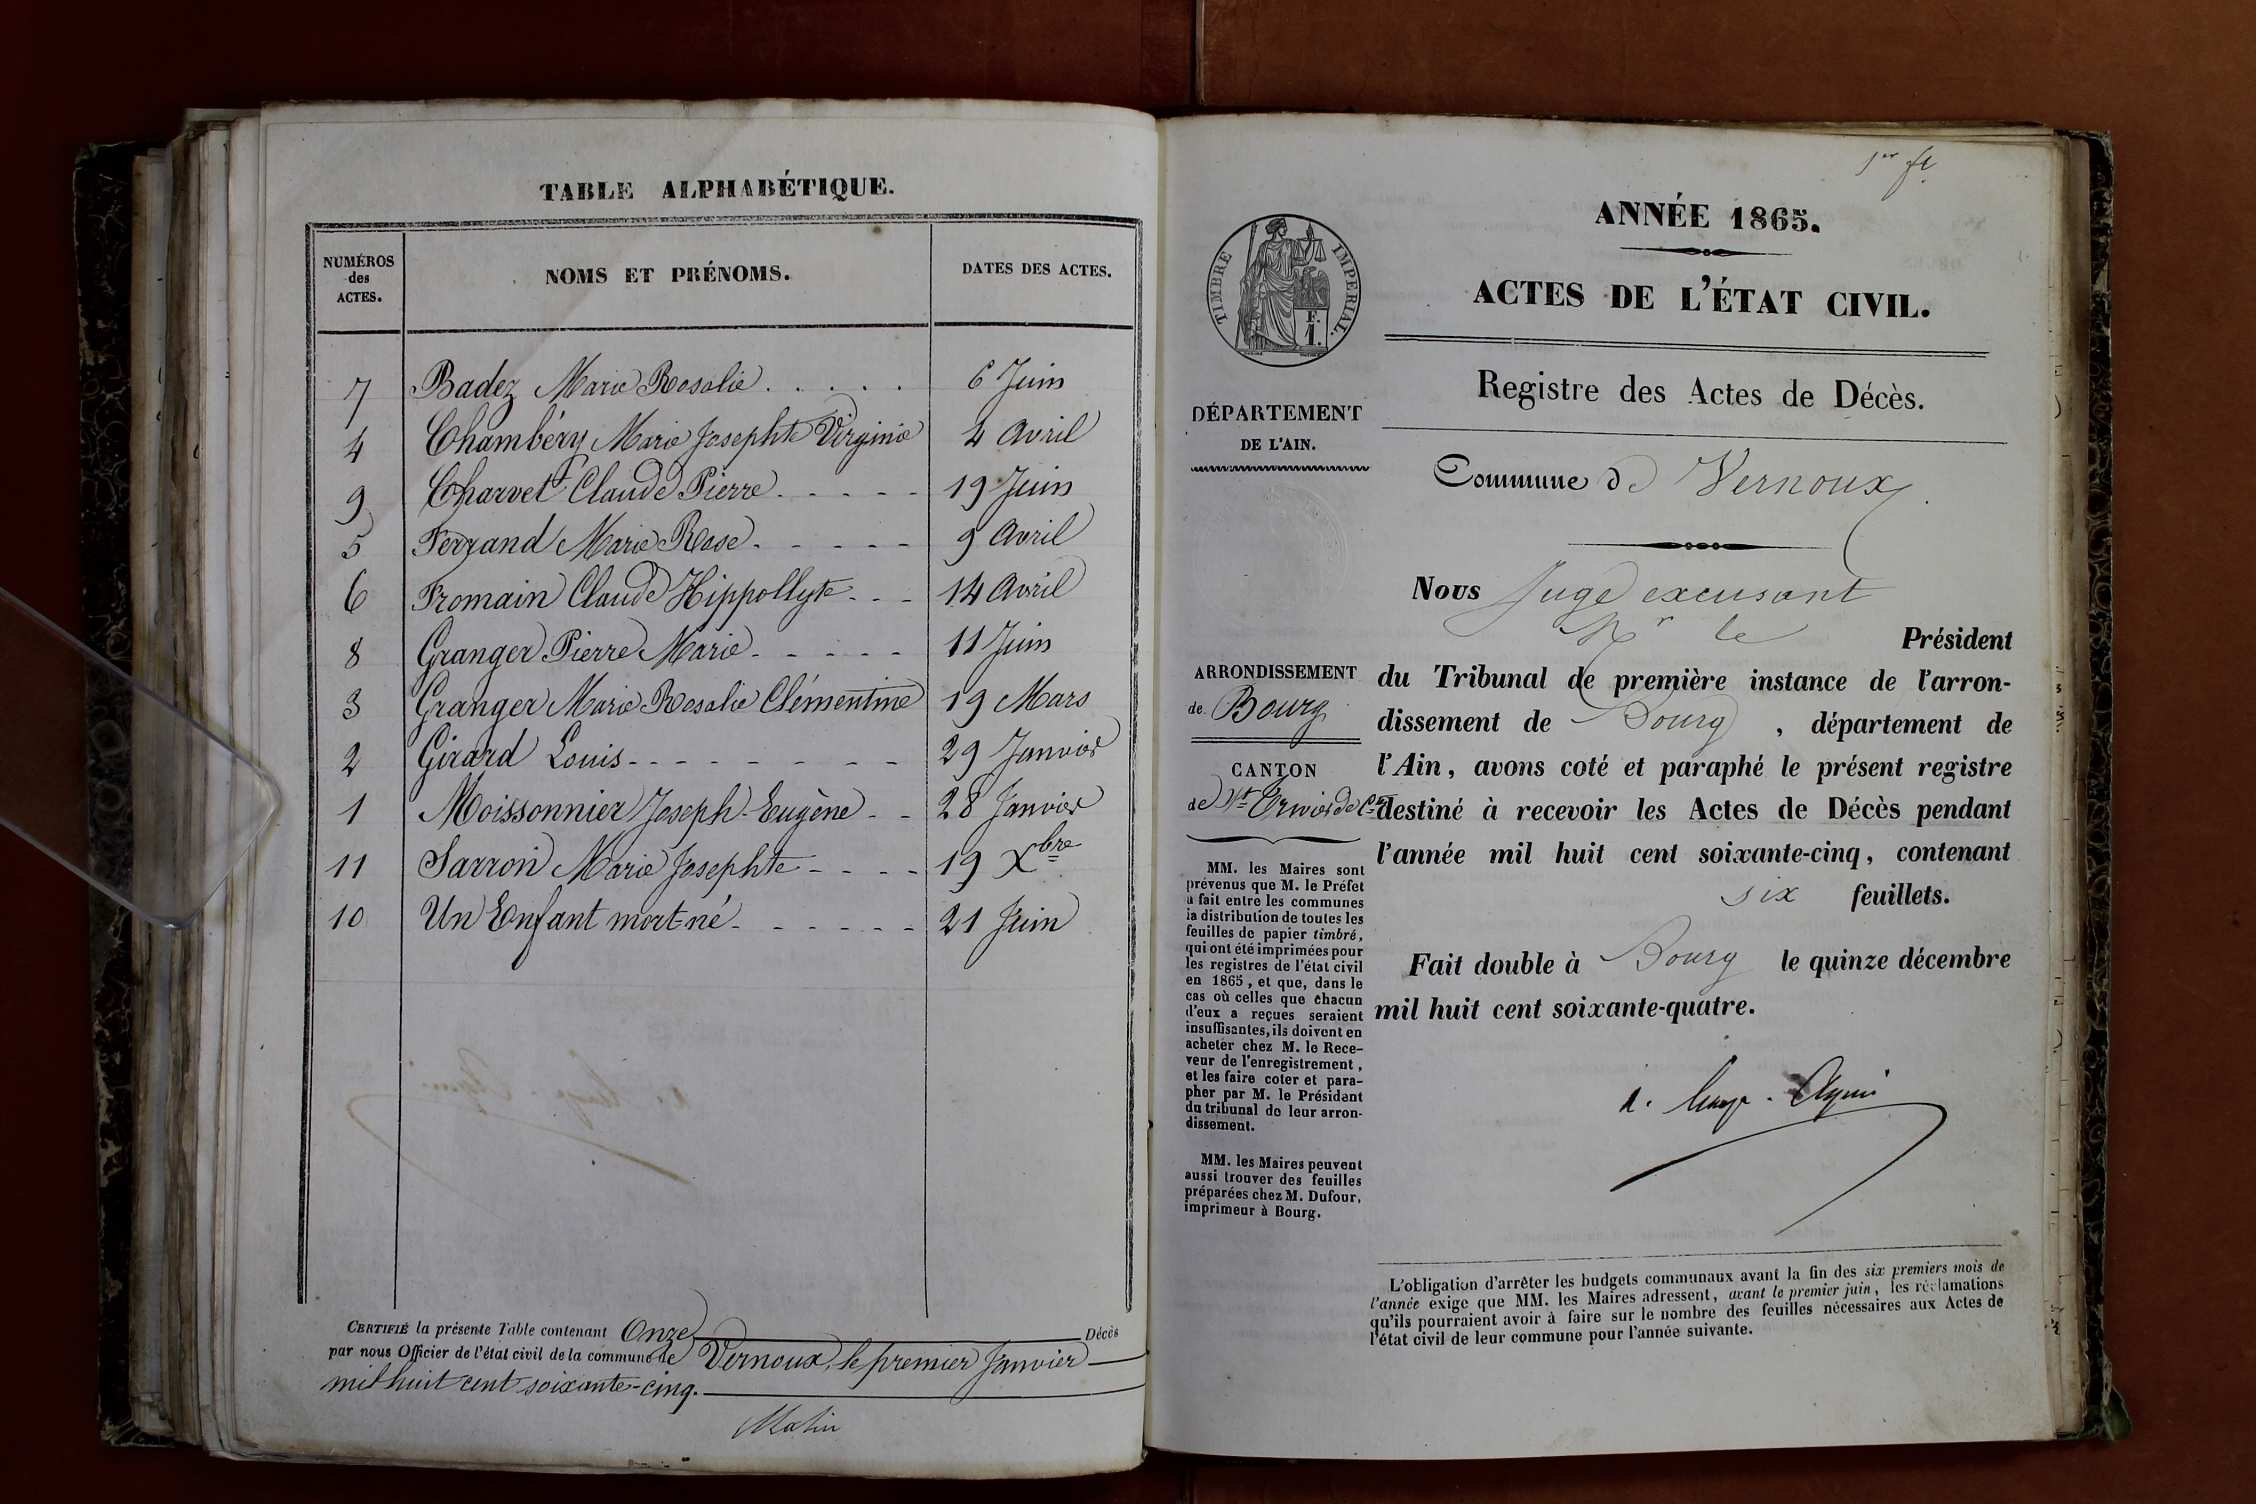 TABLE ALPHABÉTIQUE.
NUMÉROS
des
ACTES.
NOMS ET PRÉNOMS.
DATES DES ACTES.
7 Badez Marie Rosalie . . . . . 6 Juin
4 Chambéry Marie Josephte Virginie 4 Avril
9 Charvet Claude Pierre - - - - - 19 Juin
5 Ferrand Marie Rose - - - - - 9 Avril
6 Fromain Claude Hippollyte - - - 14 Avril
8 Granger Pierre Marie - - - - - 11 Juin
3 Granger Marie Rosalie Clémentine 19 Mars
2 Girard Louis - - - - - - - - 29 Janvier
1 Moissonnier Joseph-Eugène - - 28 Janvier
11 Sarron Marie Josephte - - - - 19 Xbre
10 Un Enfant mort-né - - - - - - 21 Juin
CERTIFIÉ la présente Table contenant Onze Décès
par nous Officier de l'état civil de la commune de Vernoux, le premier Janvier
mil huit cent soixante-cinq.
1er ft.
ANNÉE 1865.
ACTES DE L'ÉTAT CIVIL.
Registre des Actes de Décès.
TIMBRE IMPERIAL.
F.
1.
DÉPARTEMENT
DE L'AIN.
Commune de Vernoux
Nous Juge excusant
Mr le Président
du Tribunal de première instance de l'arron-
dissement de Bourg, département de
l'Ain, avons coté et paraphé le présent registre
destiné à recevoir les Actes de Décès pendant
l'année mil huit cent soixante-cinq, contenant
six feuillets.
Fait double à Bourg le quinze décembre
mil huit cent soixante-quatre.
ARRONDISSEMENT
de Bourg
CANTON
de St Trivier de Cs
MM. les Maires sont
prévenus que M. le Préfet
a fait entre les communes
la distribution de toutes les
feuilles de papier timbré,
qui ont été imprimées pour
les registres de l'état civil
en 1865, et que, dans le
cas où celles que chacun
d'eux a reçues seraient
insuffisantes, ils doivent en
acheter chez M. le Rece-
veur de l'enregistrement,
et les faire coter et para-
pher par M. le Président
du tribunal de leur arron-
dissement.
MM. les Maires peuvent
aussi trouver des feuilles
préparées chez M. Dufour,
imprimeur à Bourg.
L'obligation d'arrêter les budgets communaux avant la fin des six premiers mois de
l'année exige que MM. les Maires adressent, avant le premier juin, les réclamations
qu'ils pourraient avoir à faire sur le nombre des feuilles nécessaires aux Actes de
l'état civil de leur commune pour l'année suivante.